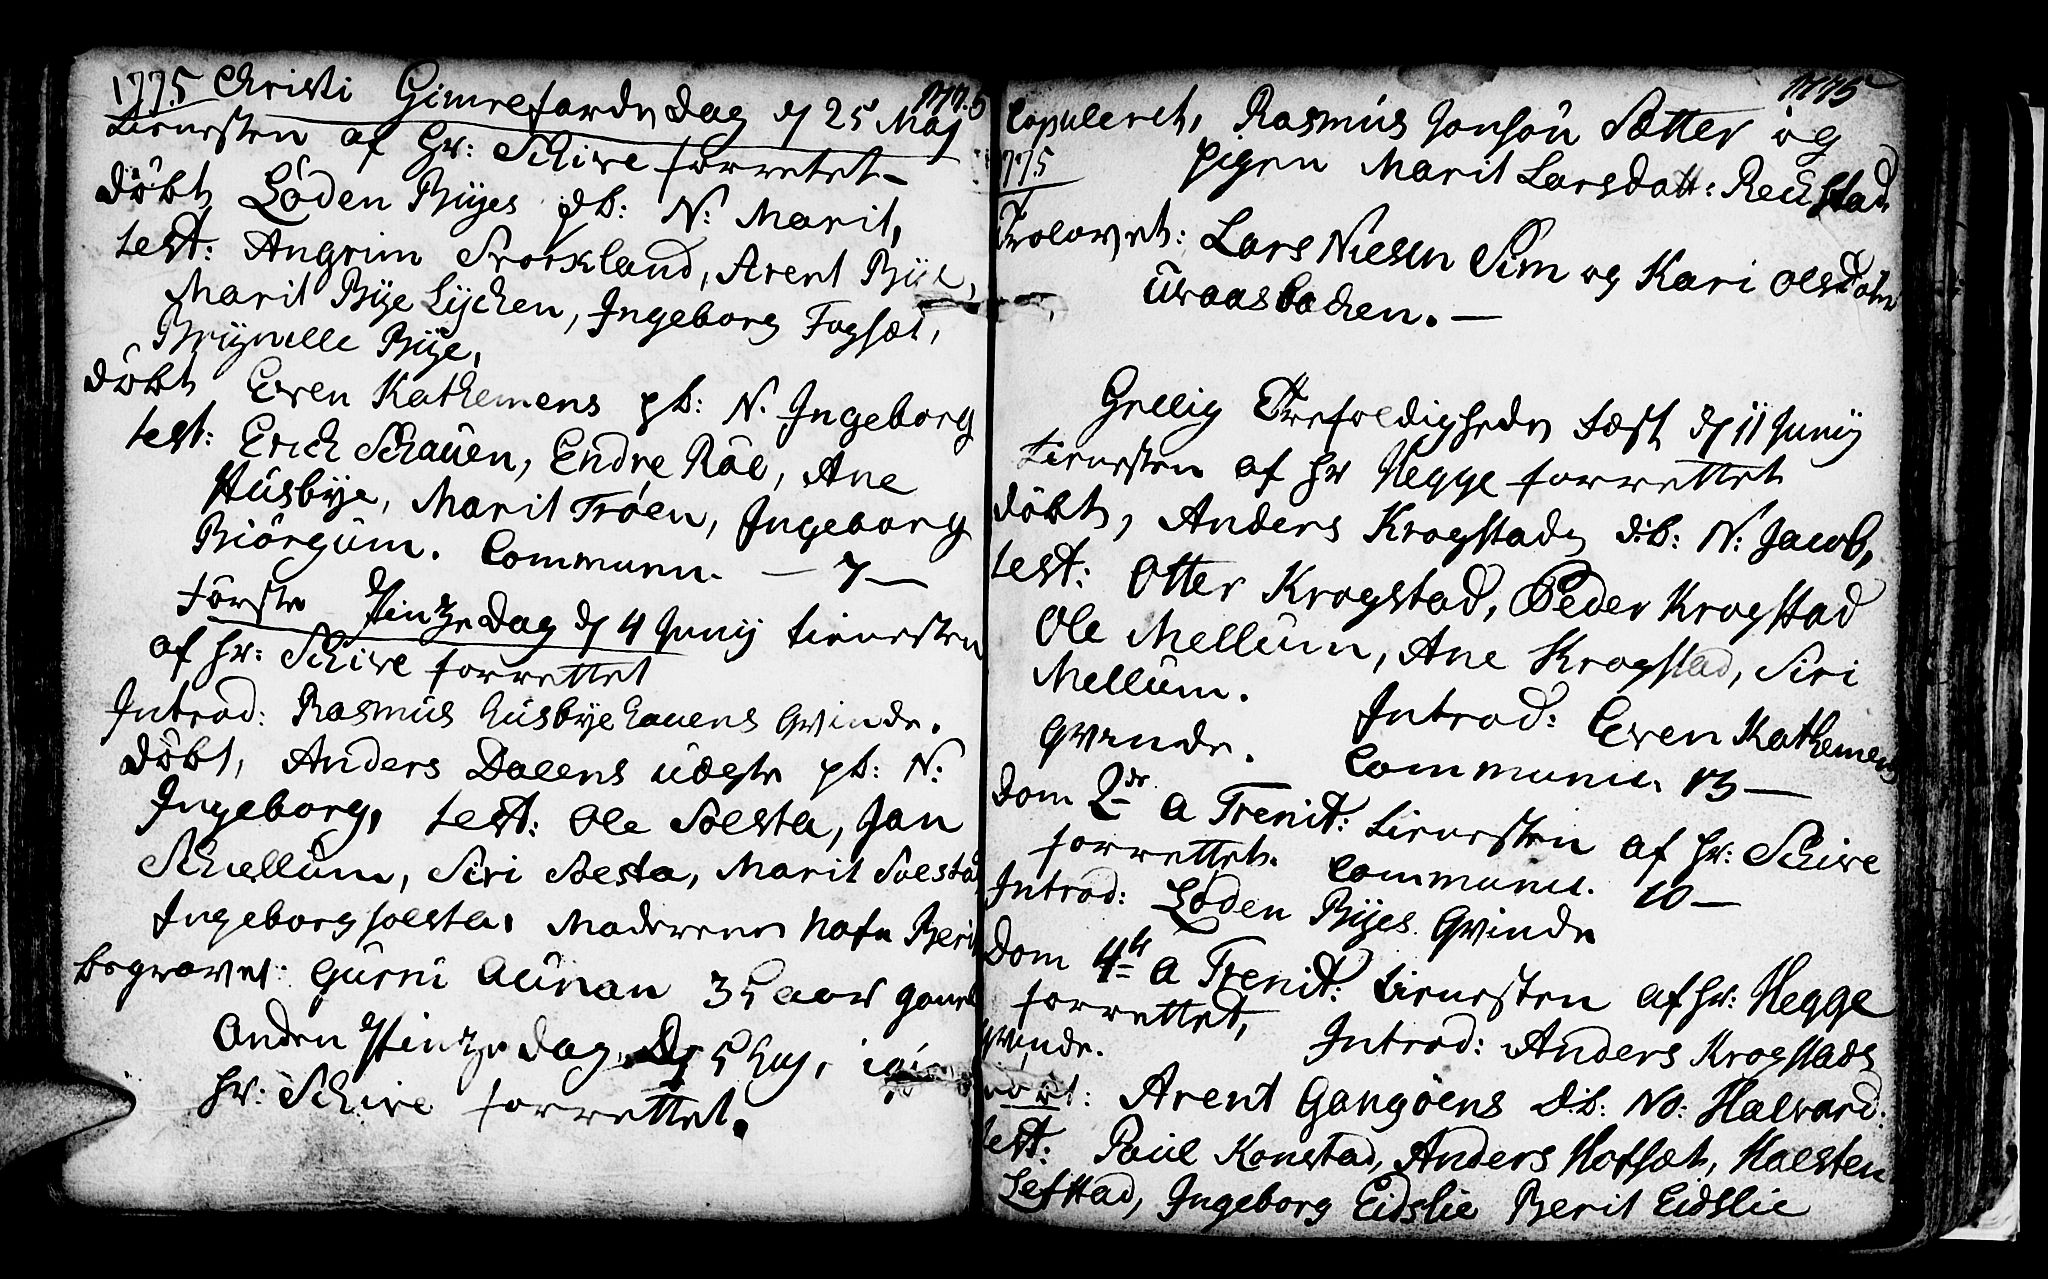 1775 Christi Himelfards Dag d 25 Maj 1775
tienesten af Hr: Schive forretet
døbt, Loden Byes db: N: Marit,
test: Angrim Storkland, Arent Bye,
Marit Bye Lychen, Ingeborg Fagsæt,
Brynelle Bye,
døbt Even Kathemens pb: N. Ingeborg
test: Erich Schauen, Endre Röe, Ane
Husbye, Marit Trøen, Ingeborg
Biörgum. Commun. — 7 —
første Pintze Dag d 4 Junij tienesten
af Hr: Schive forrettet
Introd: Rasmus Husbye Hauens Qvinde.
døbt, Anders Dalens uægte pb: N:
Ingeborg, test: Ole Solsta, Jan
Schellum, Siri Solsta, Marit Solsta
Ingeborg Solsta. Moderens Nafn Beri
begravet: Gurni Aunan 35 aar gamel
Anden Pintze dag, d 5 Huj,
Hr: Schive forrettet.
1775
Copuleret, Rasmus Jonson Sætter og
1775 pigen Marit Larsdatt: Reustad
Trolovet: Lars Nielsn Sim og Kari Olsdatr
Uvaasbachen. —
Hellig Trefoldigheds Fæst d 11 Junij
tienesten af Hr Hegge forrettet
døbt, Anders Krogstads d:b: N: Jacob,
test: Otter Krogstad, Peder Krogstad
Ole Mellum, Ane Krogstad, Siri
Mellum. Introd: Even Kathemens
Qvinde. Communi. 13 —
Dom 2de a Trenit: tienesten af Hr: Schive
forrettet. Communi. 10 —
Introd: Loden Byes Qvinde
Dom 4de a Trenit: tienesten af Hr: Hegge
forrettet, Introd: Anders Krogstads
Qvinde.
Arent Gangöens d:b: No: Halvard:
test: Paul Konstad, Anders Hofsæt, Kalsten
Lefstad, Ingeborg Eidslie Berit Eidslie